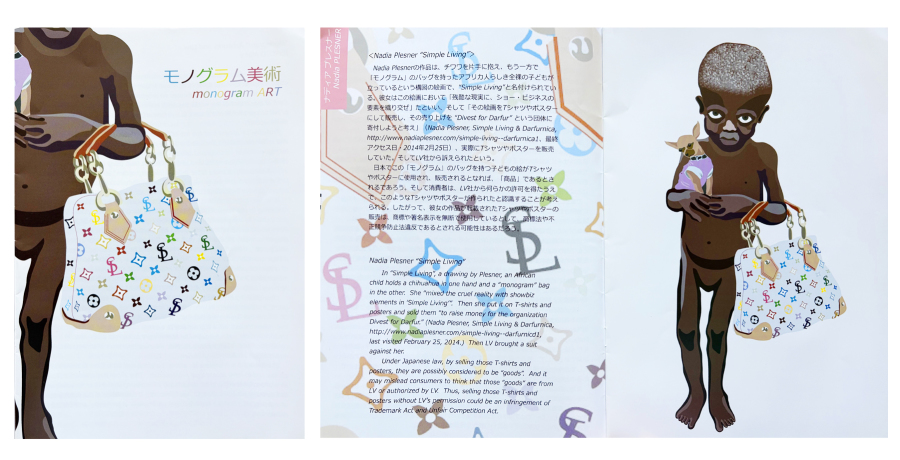 モノグラム美術
monogram ART
ナディア プレスナー
Nadia PLESNER
<Nadia Plesner "Simple Living">
Nadia Plesnerの作品は、チワワを片手に抱え、もう一方で
「モノグラム」のバッグを持ったアフリカ人らしき全裸の子どもが
立っているという構図の絵画で、"Simple Living"と名付けられてい
る。彼女はこの絵画において「残酷な現実に、ショー・ビジネスの
要素を織り交ぜ」たといい、そして「その絵画をTシャツやポスター
にして販売し、その売り上げを "Divest for Darfur" という団体に
寄付しようと考え」(Nadia Plesner, Simple Living & Darfurnica,
http://www.nadiaplesner.com/simple-living--darfurnica1、最終
アクセス日:2014年2月25日)、実際にTシャツやポスターを販売
していた。そしてLV社から訴えられたという。
日本でこの「モノグラム」のバッグを持つ子どもの絵がTシャツ
やポスターに使用され、販売されるとなれば、「商品」であるとさ
れるであろう。そして消費者は、LV社から何らかの許可を得たうえ
で、このようなTシャツやポスターが作られたと認識することが考え
られる。したがって、彼女の作品が掲載されたTシャツやポスターの
販売は、商標や著名表示を無断で使用しているとして、商標法や不
正競争防止法違反であるとされる可能性はあるだろう。
Nadia Plesner "Simple Living"
In "Simple Living", a drawing by Plesner, an African
child holds a chihuahua in one hand and a "monogram" bag
in the other. She "mixed the cruel reality with showbiz
elements in 'Simple Living'". Then she put it on T-shirts and
posters and sold them "to raise money for the organization
Divest for Darfur." (Nadia Plesner, Simple Living & Darfurnica,
http://www.nadiaplesner.com/simple-living--darfurnica1,
last visited February 25, 2014.) Then LV brought a suit
against her.
Under Japanese law, by selling those T-shirts and
posters, they are possibly considered to be "goods". And it
may mislead consumers to think that those "goods" are from
LV or authorized by LV. Thus, selling those T-shirts and
posters without LV's permission could be an infringement of
Trademark Act and Unfair Competition Act.